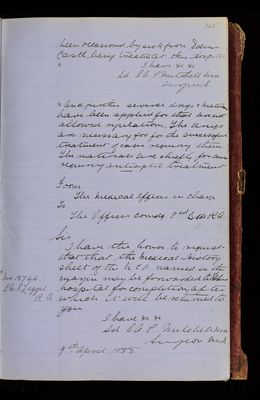 been occasioned by sick from Eden-
Castle being treated at this hospital
I have &c &c
Sd C A P Mitchell MB
Surgeon
x And further several drugs &
have been applied for that are not
allowed regulation. The drugs
are necessary for the successful
treatment of cases requiring them
The materials are chiefly for cases
requiring antiseptic treatment
From
The Medical Officer in charge
To
The Officer Comdg 3rd B. R.A.
Sir
I have the honor to request
that that the Medical History
sheet of the N.C.O. named in the
margin may be forwarded to this
hospital for completion, after
which it will be returned to
you
I have &c &c
Sd C A P Mitchell MB
Surgeon
9th April 1888
R A